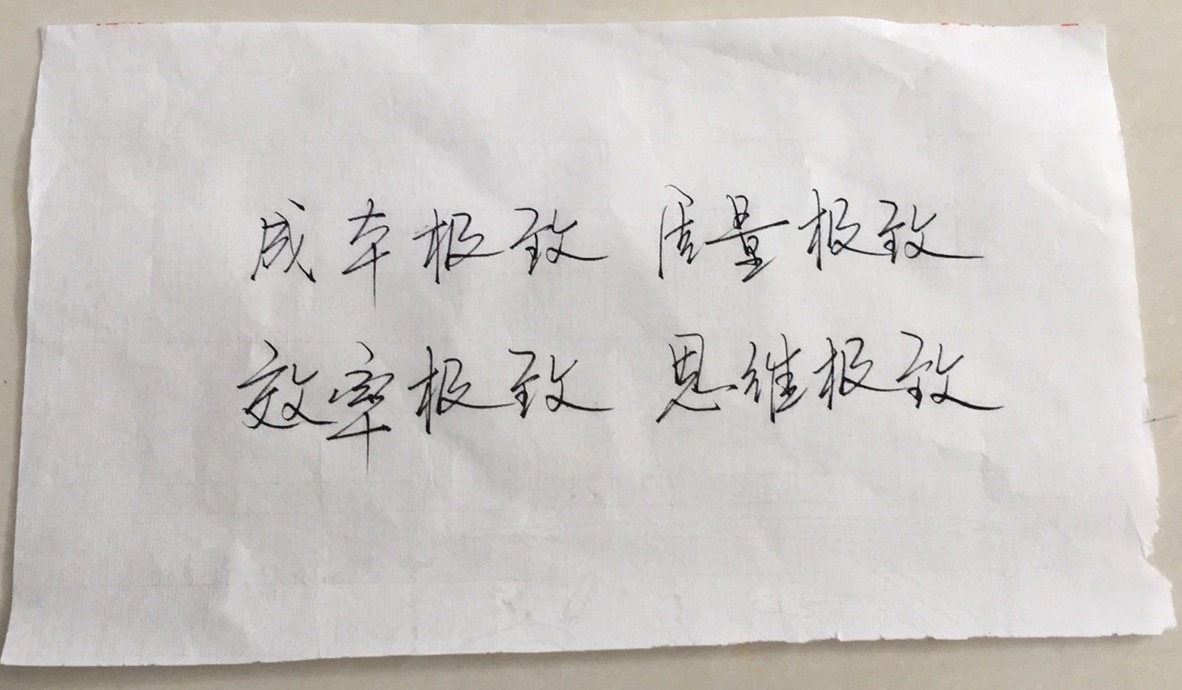 成本极致 质量极致
效率极致 思维极致